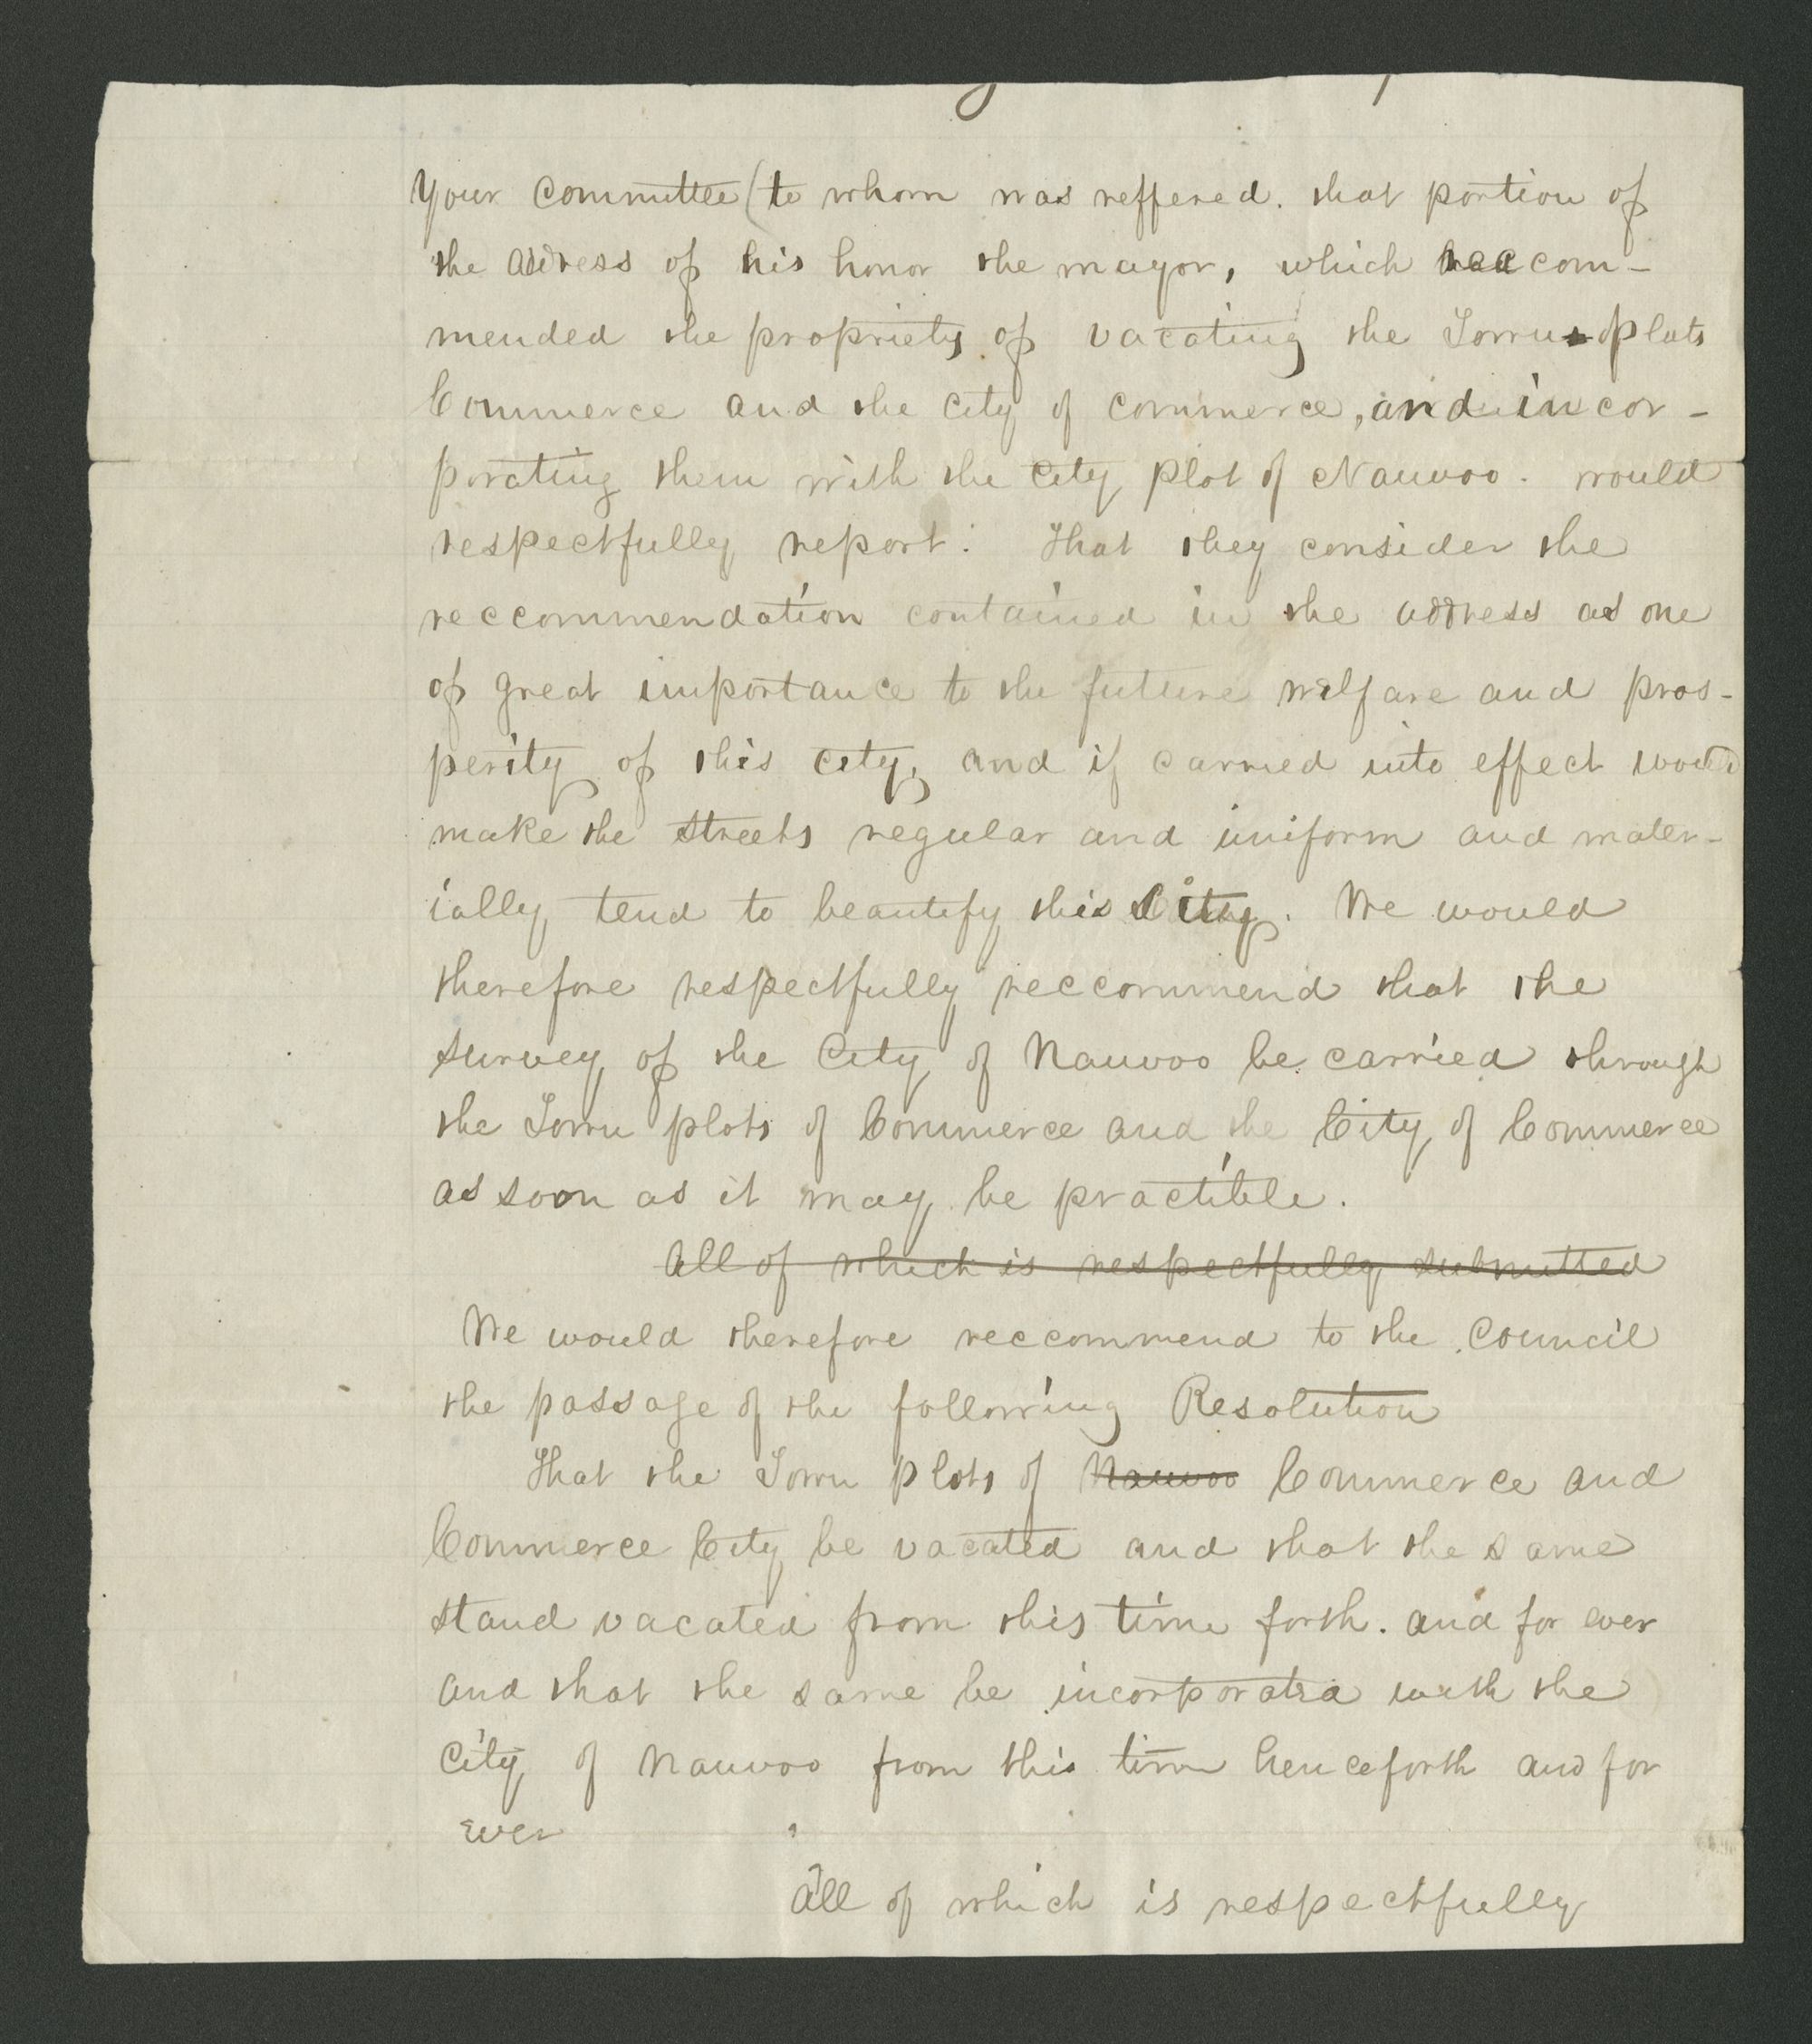 Your committee (to whom was reffered. that portion of
the address of his honor the mayor, which reccom-
mended the propriety of vacating the Town plots
Commerce and the city of commerce, and incor-
porating them with the city plot of Nauvoo. would
respectfully report: That they consider the
reccommendation contained in the address as one
of great importance to the future welfare and pros-
perity of this city, and if carried into effect would
make the streets regular and uniform and mater-
ially tend to beautify this City. We would
therefore respectfully reccommend that the
survey of the City of Nauvoo be carried through
the Town plots of Commerce and the City of Commerce
as soon as it may be practible.
All of which is respectfully submitted
We would therefore reccommend to the council
the passage of the following Resolution
That the Town plots of Nauvoo Commerce and
Commerce City be vacated and that the same
stand vacated from this time forth. and for ever
and that the same be incorporated with the
City of Nauvoo from this time henceforth and for
ever
All of which is respectfully